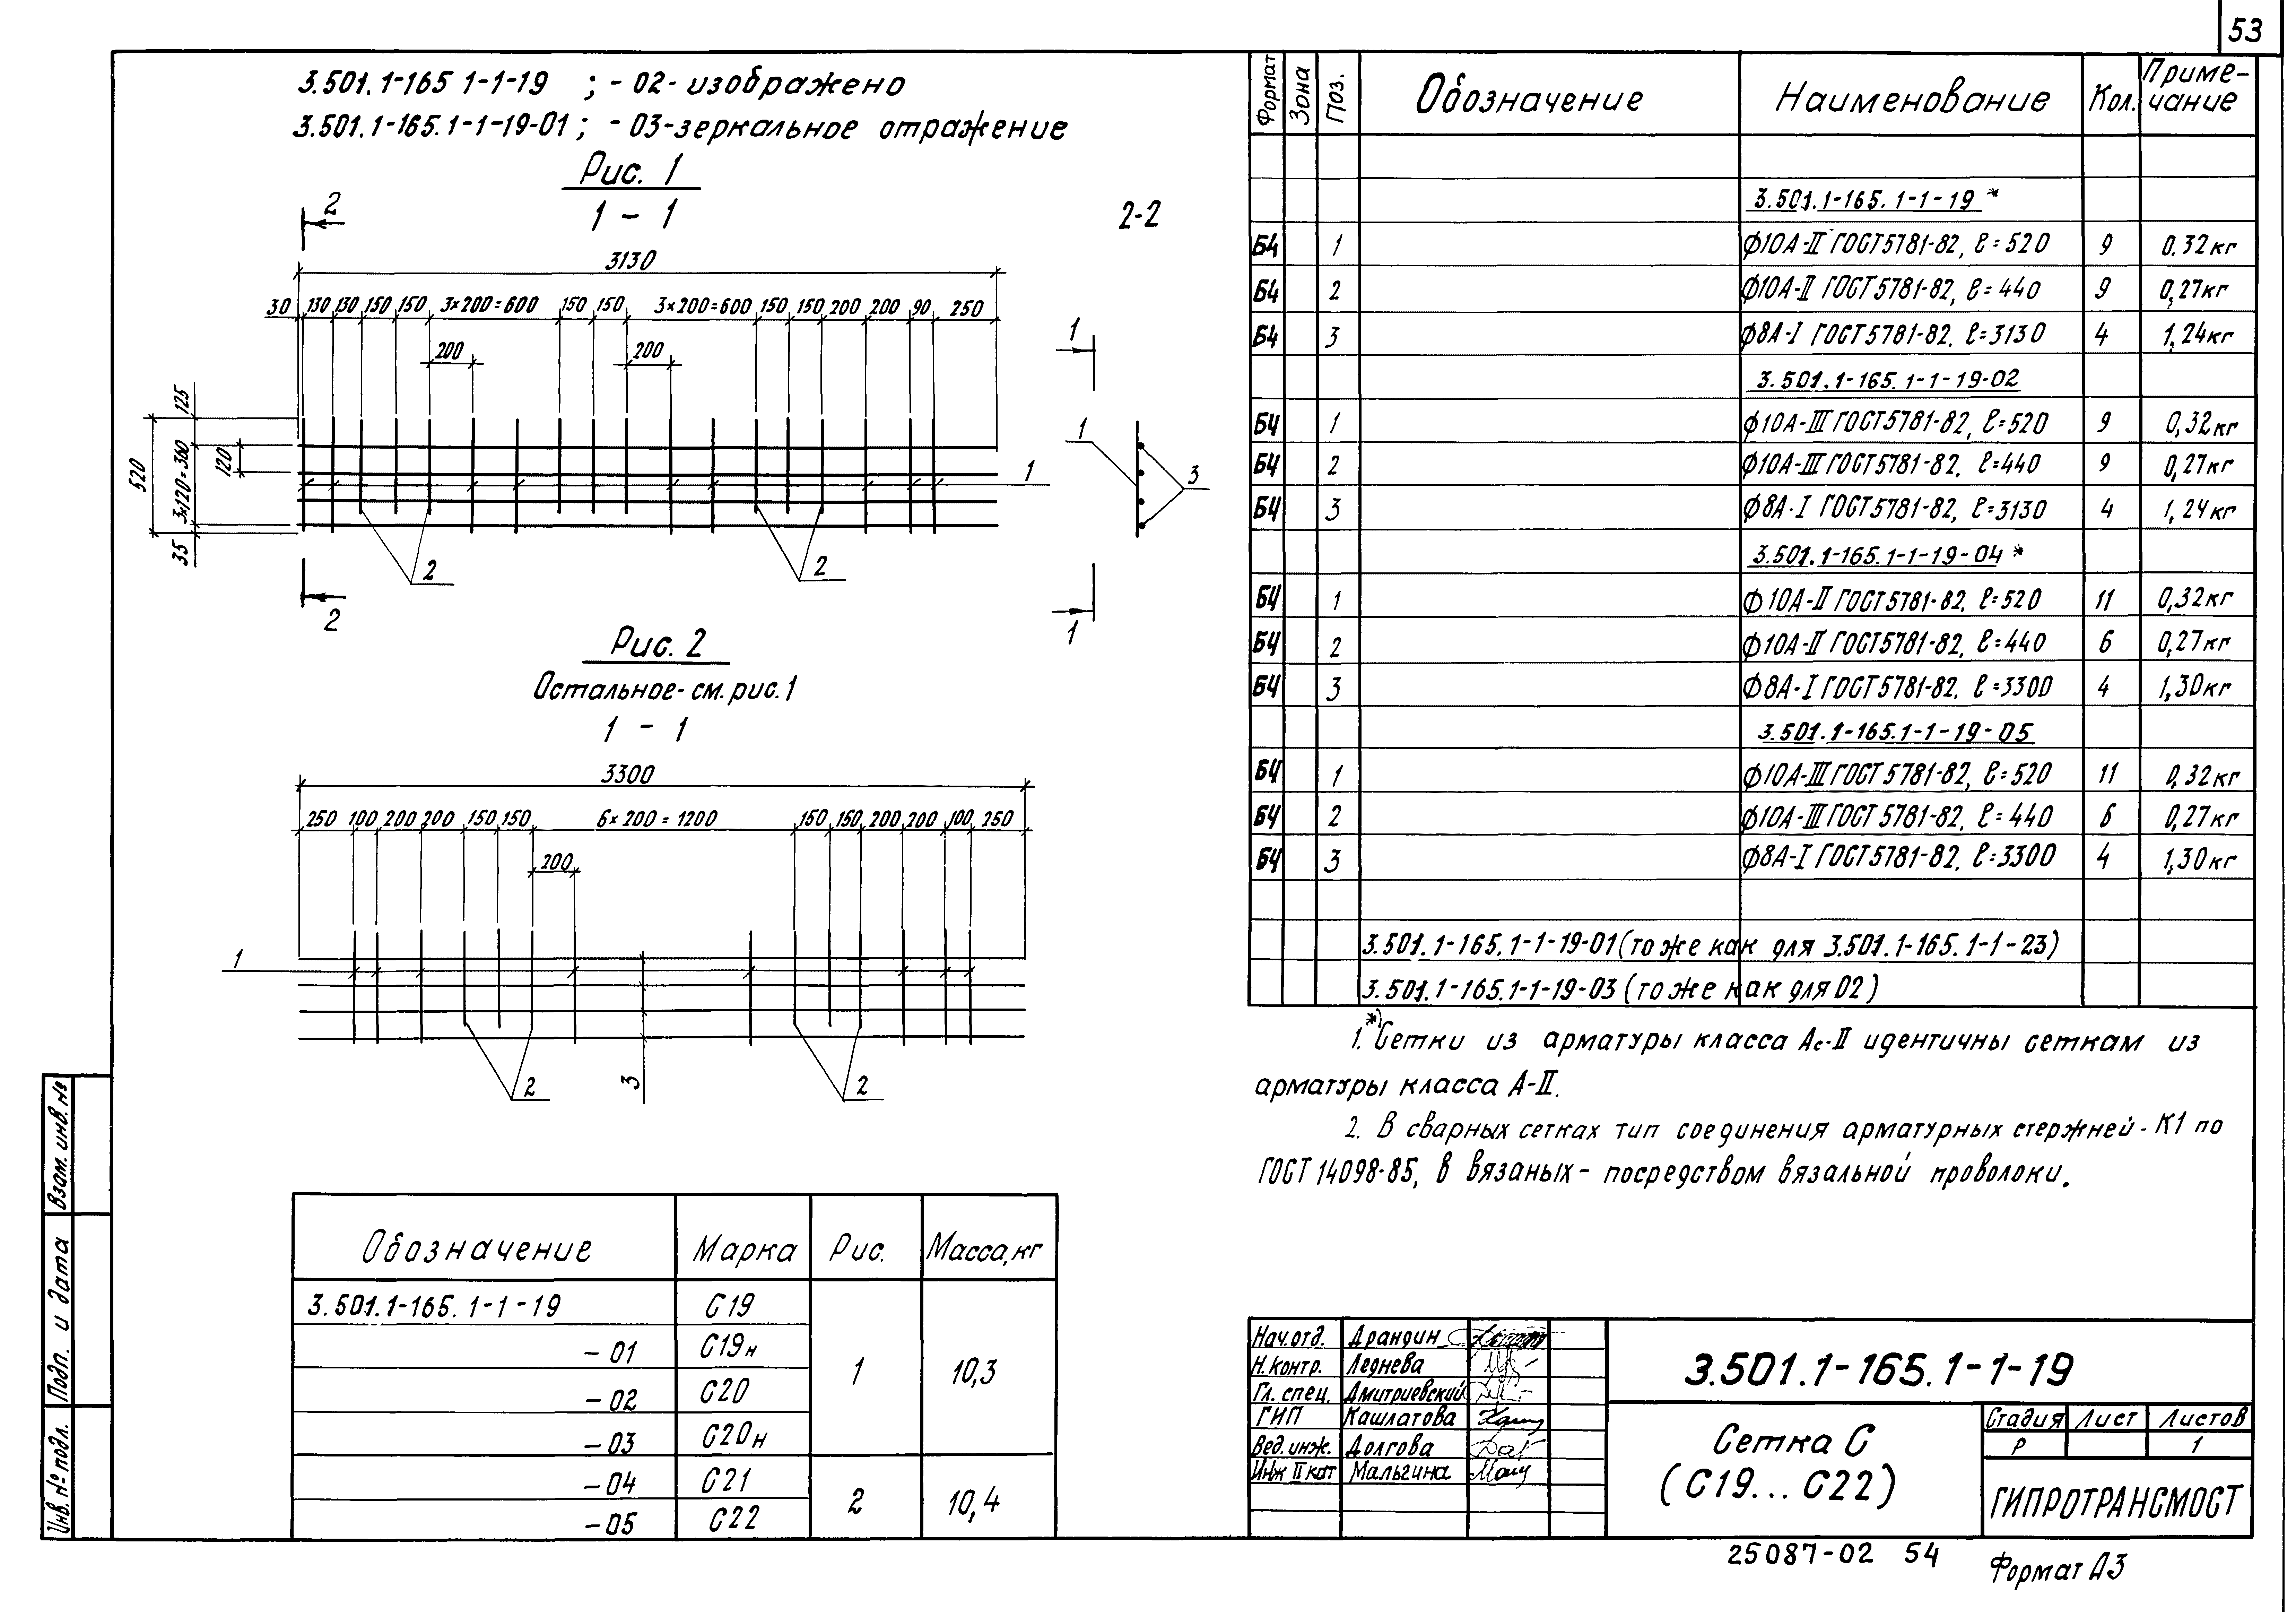 53
3.501.1-165 1-1-19 ; - 02- изображено
3.501.1-165.1-1-19-01; - 03-зеркальное отражение
Рис. 1
1 - 1
2-2
2
3130
30 130 130 150 150 3×200=600 150 150 3×200=600 150 150 200 200 90 250
200 200
1
125
520
3×120=360
120
35
1
1
3
2
2
2
1
Рис. 2
Остальное- см. рис. 1
1 - 1
3300
250 100 200 200 150 150 6×200=1200 150 150 200 200 100 250
200
1
2
3
2
Обозначение Марка Рис. Масса, кг
3.501.1-165.1-1-19 С19
-01 С19н
1 10,3
-02 С20
-03 С20н
-04 С21
2 10,4
-05 С22
Формат Зона Поз. Обозначение Наименование Кол. Приме-
чание
3.501.1-165.1-1-19 *
Б4 1 Ф10А-II ГОСТ5781-82, ℓ=520 9 0.32кг
Б4 2 Ф10А-II ГОСТ5781-82, ℓ=440 9 0,27кг
Б4 3 Ф8А-I ГОСТ5781-82, ℓ=3130 4 1,24кг
3.501.1-165.1-1-19-02
Б4 1 Ф10А-III ГОСТ5781-82, ℓ=520 9 0,32кг
Б4 2 Ф10А-III ГОСТ5781-82, ℓ=440 9 0,27кг
Б4 3 Ф8А-I ГОСТ5781-82, ℓ=3130 4 1,24кг
3.501.1-165.1-1-19-04 *
Б4 1 Ф10А-II ГОСТ5781-82, ℓ=520 11 0,32кг
Б4 2 Ф10А-II ГОСТ5781-82, ℓ=440 6 0,27кг
Б4 3 Ф8А-I ГОСТ5781-82, ℓ=3300 4 1,30кг
3.501.1-165.1-1-19-05
Б4 1 Ф10А-III ГОСТ5781-82, ℓ=520 11 0,32кг
Б4 2 Ф10А-III ГОСТ5781-82, ℓ=440 6 0,27кг
Б4 3 Ф8А-I ГОСТ5781-82, ℓ=3300 4 1,30кг
3.501.1-165.1-1-19-01 (то же как для 3.501.1-165.1-1-23)
3.501.1-165.1-1-19-03 (то же как для 02)
1.*) Сетки из арматуры класса Ас-II идентичны сеткам из
арматуры класса А-II.
2. В сварных сетках тип соединения арматурных стержней - К1 по
ГОСТ 14098-85, в вязаных - посредством вязальной проволоки.
Нач.отд. Драндин
Н.контр. Леднева
Гл. спец. Дмитриевский
ГИП Кашлатова
Вед.инж. Долгова
Инж II кат Мальгина
3.501.1-165.1-1-19
Сетка С
(С19... С22)
Стадия Лист Листов
Р 1
ГИПРОТРАНСМОСТ
25087-02 54
Формат А3
Взам. инв. №
Подп. и дата
Инв. № подл.